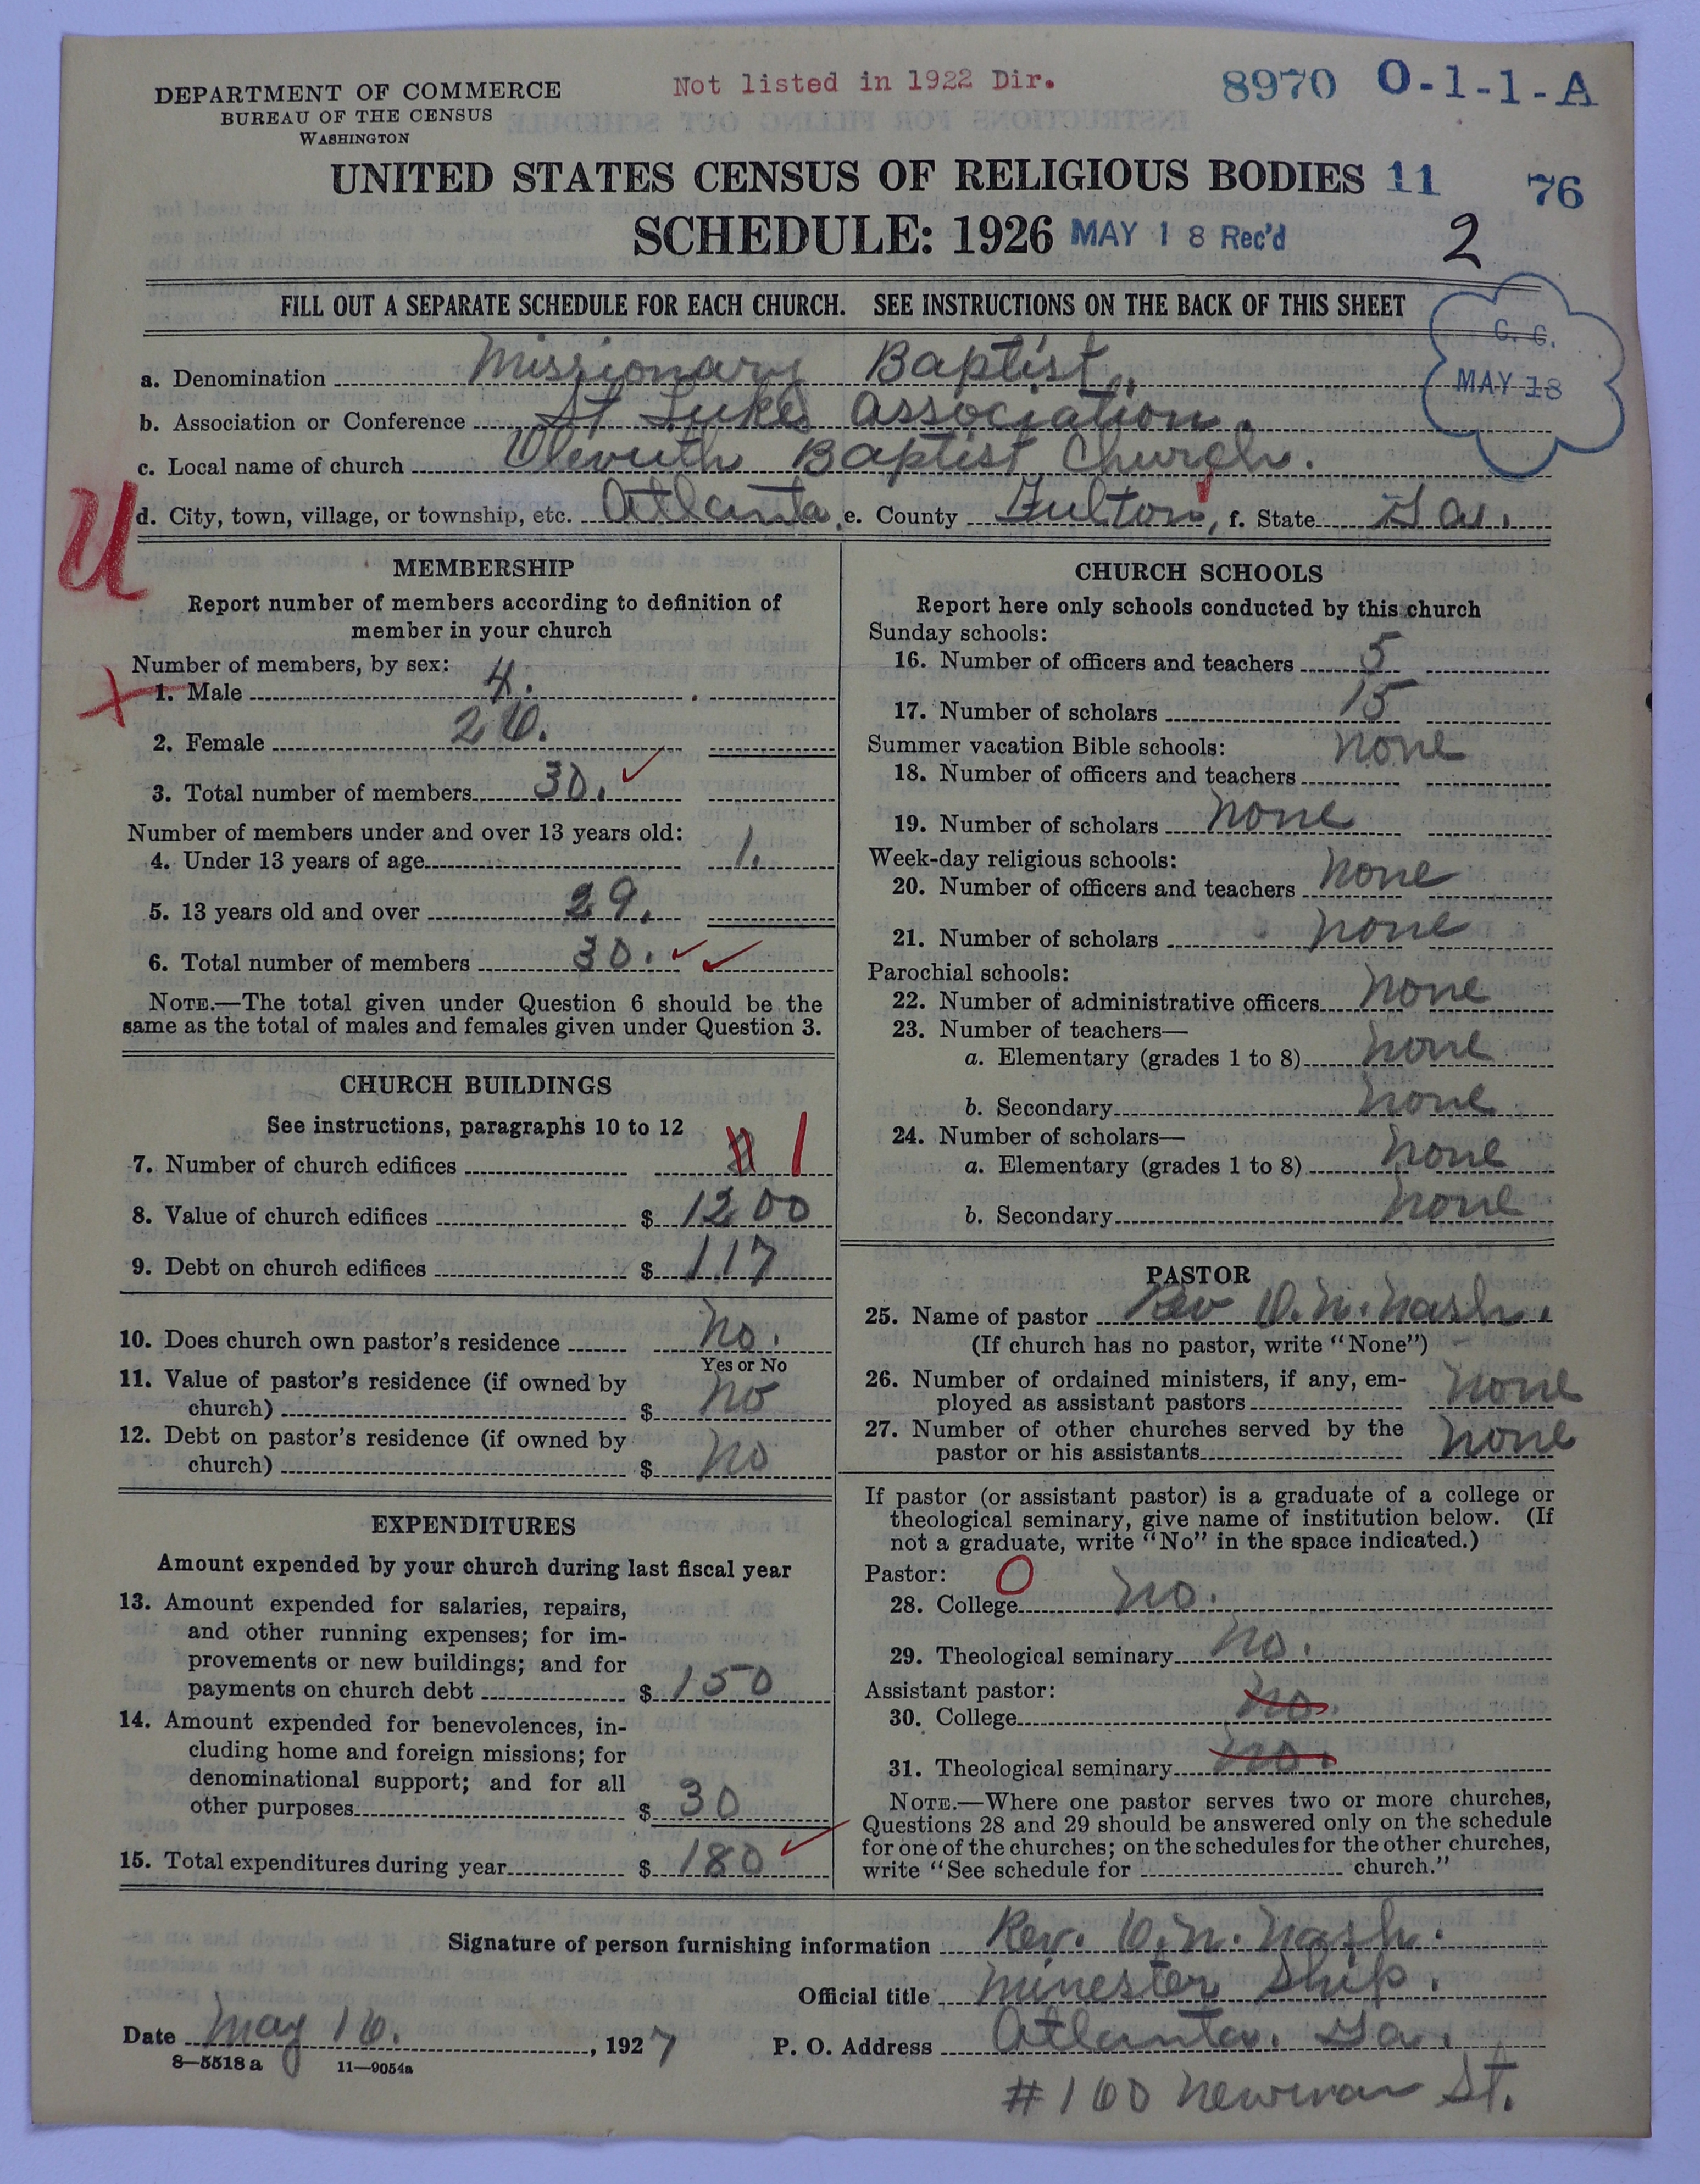 DEPARTMENT OF COMMERCE
BUREAU OF THE CENSUS
WASHINGTON
Not listed in 1922 Dir.
8970 O-1-1-A
UNITED STATES CENSUS OF RELIGIOUS BODIES 11 76
SCHEDULE: 1926 MAY 18 Rec'd 2
FILL OUT A SEPARATE SCHEDULE FOR EACH CHURCH. SEE INSTRUCTIONS ON THE BACK OF THIS SHEET
MAY 18
a. Denomination Missionary Baptist.
b. Association or Conference St Lukes Association.
c. Local name of church Baptist Church.
U
d. City, town, village, or township, etc. Atlanta, e. County Fulton, f. State Ga.
MEMBERSHIP
Report number of members according to definition of
member in your church
Number of members, by sex:
X 1. Male 4.
2. Female 26.
3. Total number of members 30. ✓
Number of members under and over 13 years old:
4. Under 13 years of age 1.
5. 13 years old and over 29.
6. Total number of members 30. ✓ ✓
NOTE.—The total given under Question 6 should be the
same as the total of males and females given under Question 3.
CHURCH BUILDINGS
See instructions, paragraphs 10 to 12
7. Number of church edifices 1
8. Value of church edifices $ 1200
9. Debt on church edifices $ 117
10. Does church own pastor's residence No.
Yes or No
11. Value of pastor's residence (if owned by
church) $ no
12. Debt on pastor's residence (if owned by
church) $ no
EXPENDITURES
Amount expended by your church during last fiscal year
13. Amount expended for salaries, repairs,
and other running expenses; for im-
provements or new buildings; and for
payments on church debt $ 150
14. Amount expended for benevolences, in-
cluding home and foreign missions; for
denominational support; and for all
other purposes $ 30
15. Total expenditures during year $ 180 ✓
CHURCH SCHOOLS
Report here only schools conducted by this church
Sunday schools:
16. Number of officers and teachers 5
17. Number of scholars 15
Summer vacation Bible schools:
18. Number of officers and teachers none
19. Number of scholars none
Week-day religious schools:
20. Number of officers and teachers none
21. Number of scholars none
Parochial schools:
22. Number of administrative officers none
23. Number of teachers—
a. Elementary (grades 1 to 8) none
b. Secondary none
24. Number of scholars—
a. Elementary (grades 1 to 8) none
b. Secondary none
PASTOR
25. Name of pastor Rev O. N. Nash.
(If church has no pastor, write "None")
26. Number of ordained ministers, if any, em-
ployed as assistant pastors none
27. Number of other churches served by the
pastor or his assistants none
If pastor (or assistant pastor) is a graduate of a college or
theological seminary, give name of institution below. (If
not a graduate, write "No" in the space indicated.)
Pastor: O
28. College no.
29. Theological seminary no.
Assistant pastor:
30. College no.
31. Theological seminary no.
NOTE.—Where one pastor serves two or more churches,
Questions 28 and 29 should be answered only on the schedule
for one of the churches; on the schedules for the other churches,
write "See schedule for church."
Signature of person furnishing information Rev. O. N. Nash.
Official title Minester Ship.
Date May 16., 1927 P. O. Address Atlanta. Ga.
8—5518 a 11—9054a
#160 Newman St.